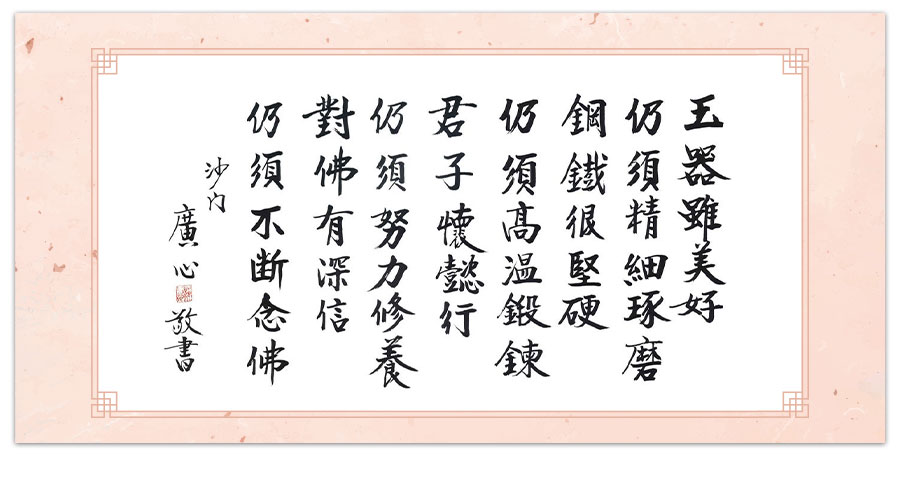 玉器雖美好
仍須精細琢磨
鋼鐵很堅硬
仍須高溫鍛鍊
君子懷懿行
仍須努力修養
對佛有深信
仍須不断念佛
沙门
廣心
敬書